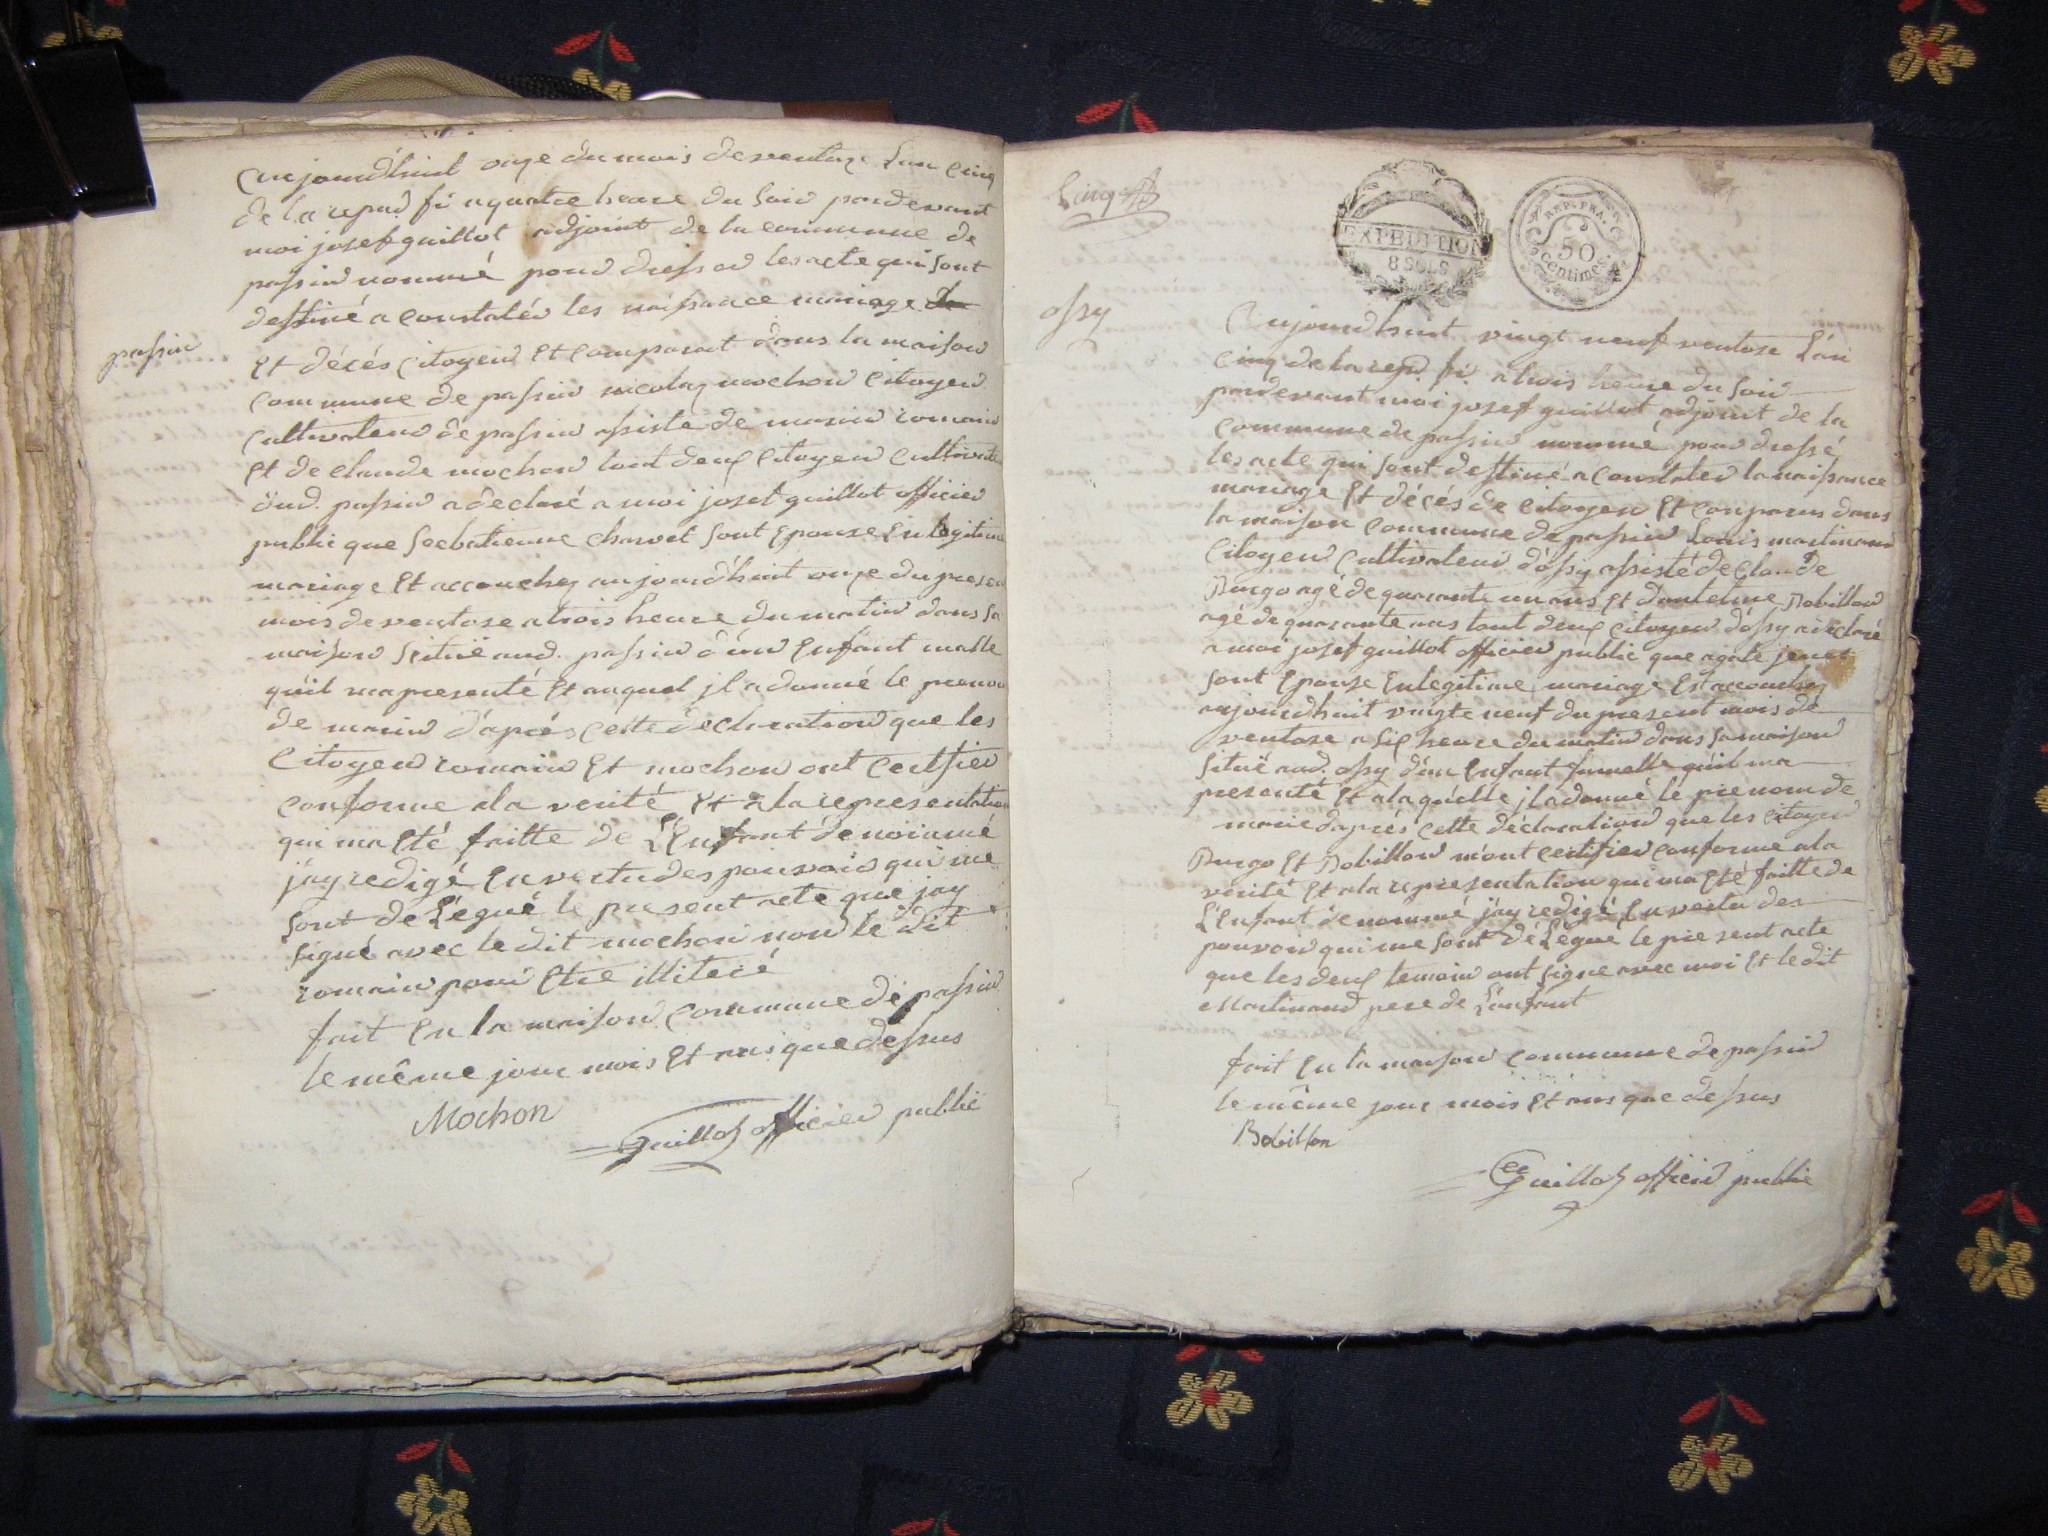 aujourd'huit onze du mois de ventoze l'an cinq
de la repud fr. a quatre heure du soir pardevant
moi josef guillot adjoint de la commune de
passin nommé pour dresser les acte qui sont
destiné a constatér les naissance mariage
passin
Et décés citoyen Et comparut dans la maison
commune de passin nicolas mochon citoyen
cultivateur de passin assiste de marin romain
Et de claude mochon tout deux citoyen cultivate
dud. passin a declaré a moi josef guillot officier
public que seebatienne charvet sont Epouse En legitime
mariage Et accouchez aujourd'huit onze du presen
mois de ventose a trois heure du matin dans sa
maison scituë aud. passin d'un Enfant malle
qu'il ma presenté Et auquel jl a donné le prenom
de marin d'aprés cette declaration que les
Citoyen romain Et mochon ont certifier
conforme a la verité Et a la representation
qui ma Eté faitte de L'Enfant dénoiumé
j'ay redigé En vertu des pouvoir qui me
sont de Légué le present acte que jay
signé avec le dit mochon non le dit
romain pour Etre illiteré
fait En la maison commune dé passin
le même jour mois Et ans que dessus
Mochon
Guillot officier public
Cinq
EXPEDITION
8 SOLS
REP. FRA.
50
centimes.
ossy
Aujourdhuit vingt neuf ventose L'an
cinq de la repd. fr. a trois heure du soir
pardevant moi josef guillot adjoint de la
commune de passin nommé pour dressé
les acte qui sont destiné a constater la naissance
mariage Et décés de citoyen Et conparus dans
la maison commune de passin Louis martinand
citoyen cultivateur d'ossy assisté de claude
Burgo agé de quarante un ans Et d'antelme Bobillon
agé de quarante ans tout deux citoyen d'ossy a declaré
a moi josef guillot officier public que agate
sont Epouse En legitime mariage Est accouchez
aujourdhuit vingte neuf du present mois de
ventose a six heure du matin dans sa maison
situë aud. ossy d'un Enfant femelle qu'il ma
presenté Et a laquélle jl a donné le prenom de
marie d'aprés cette déclaration que les citoyen
Burgo Et Bobillon m'ont certifier conforme a la
verité Et a la representation qui ma Eté faitte de
L'Enfant dénommé j'ay redigé En vertu des
pouvoir qui me sont déLégué le present acte
que les deux temoin ont signe avec moi Et le dit
Martinand pere de L'anfant
fait En la maison commune de passin
le même jour mois Et ans que dessus
Bobillon
Guillot officier public